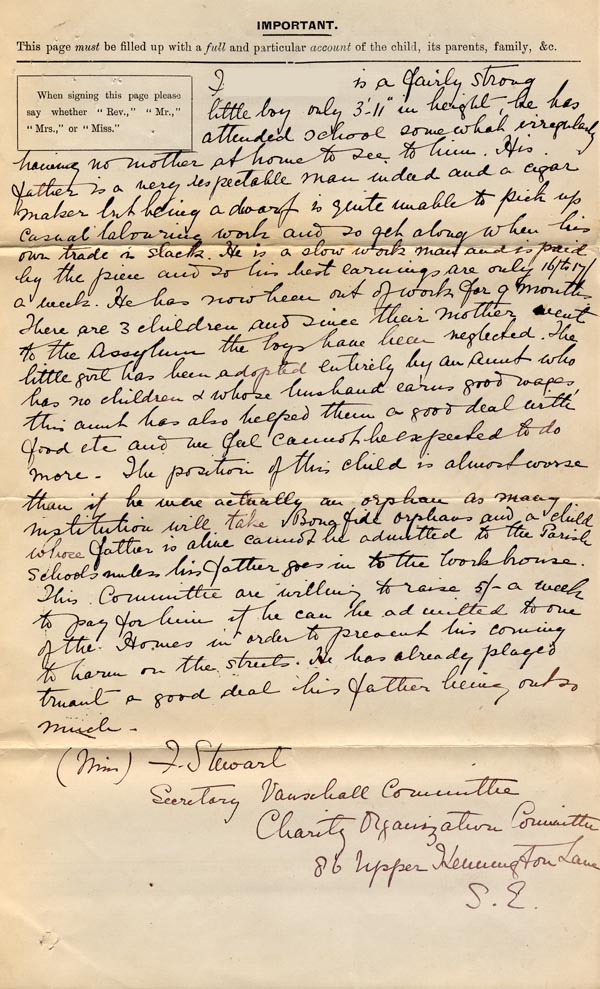 IMPORTANT.
This page must be filled up with a full and particular account of the child, its parents, family, &c.
When signing this page please
say whether "Rev.," "Mr.,"
"Mrs.," or "Miss."
J is a fairly strong
little boy only 3'.11" in height, he has
attended school somewhat irregularly
having no mother at home to see to him. His
father is a very respectable man indeed and a cigar
maker but being a dwarf is quite unable to pick up
casual labouring work and so get along when his
own trade is slack. He is a slow work man and is paid
by the piece and so his best earnings are only 16/ to 17/
a week. He has now been out of work for 9 months.
There are 3 children and since their mother went
to the Assylum the boys have been neglected. The
little girl has been adopted entirely by an aunt who
has no children & whose husband earns good wages,
this aunt has also helped them a good deal with
food etc and we feel cannot be expected to do
more - The position of this child is almost worse
than if he were actually an orphan as many
institution will take Bona fide orphans and a child
whose father is alive cannot be admitted to the Parish
Schools unless his father goes in to the Workhouse.
This Committee are willing to raise 5/- a week
to pay for him if he can be admitted to one
of the Homes in order to prevent his coming
to harm on the streets. He has already played
truant a good deal his father being out so
much -
(Miss) F. Stewart
Secretary Vauxhall Committee
Charity Organization Committee
86 Upper Kennington Lane
S. E.